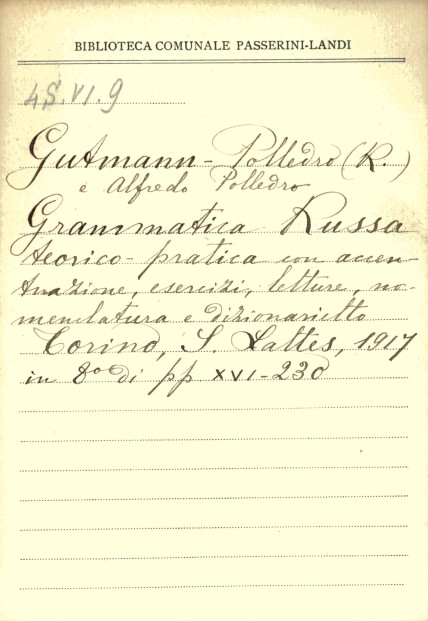 BIBLIOTECA COMUNALE PASSERINI-LANDI
4S.VI.9
Gutmann-Polledro (R.)
e Alfredo Polledro
Grammatica Russa
teorico-pratica con accen-
tuazione, esercizi, letture, no-
menclatura e dizionarietto
Torino, S. Lattes, 1917
in 8° di pp XVI-230